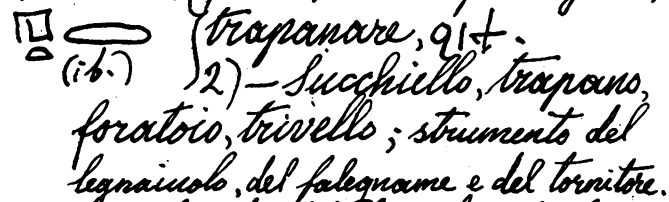 trapanare, q1t.
(ib.) 2) – Succhiello, trapano,
foratoio, trivello; strumento del
legnaiuolo, del falegname e del tornitore.